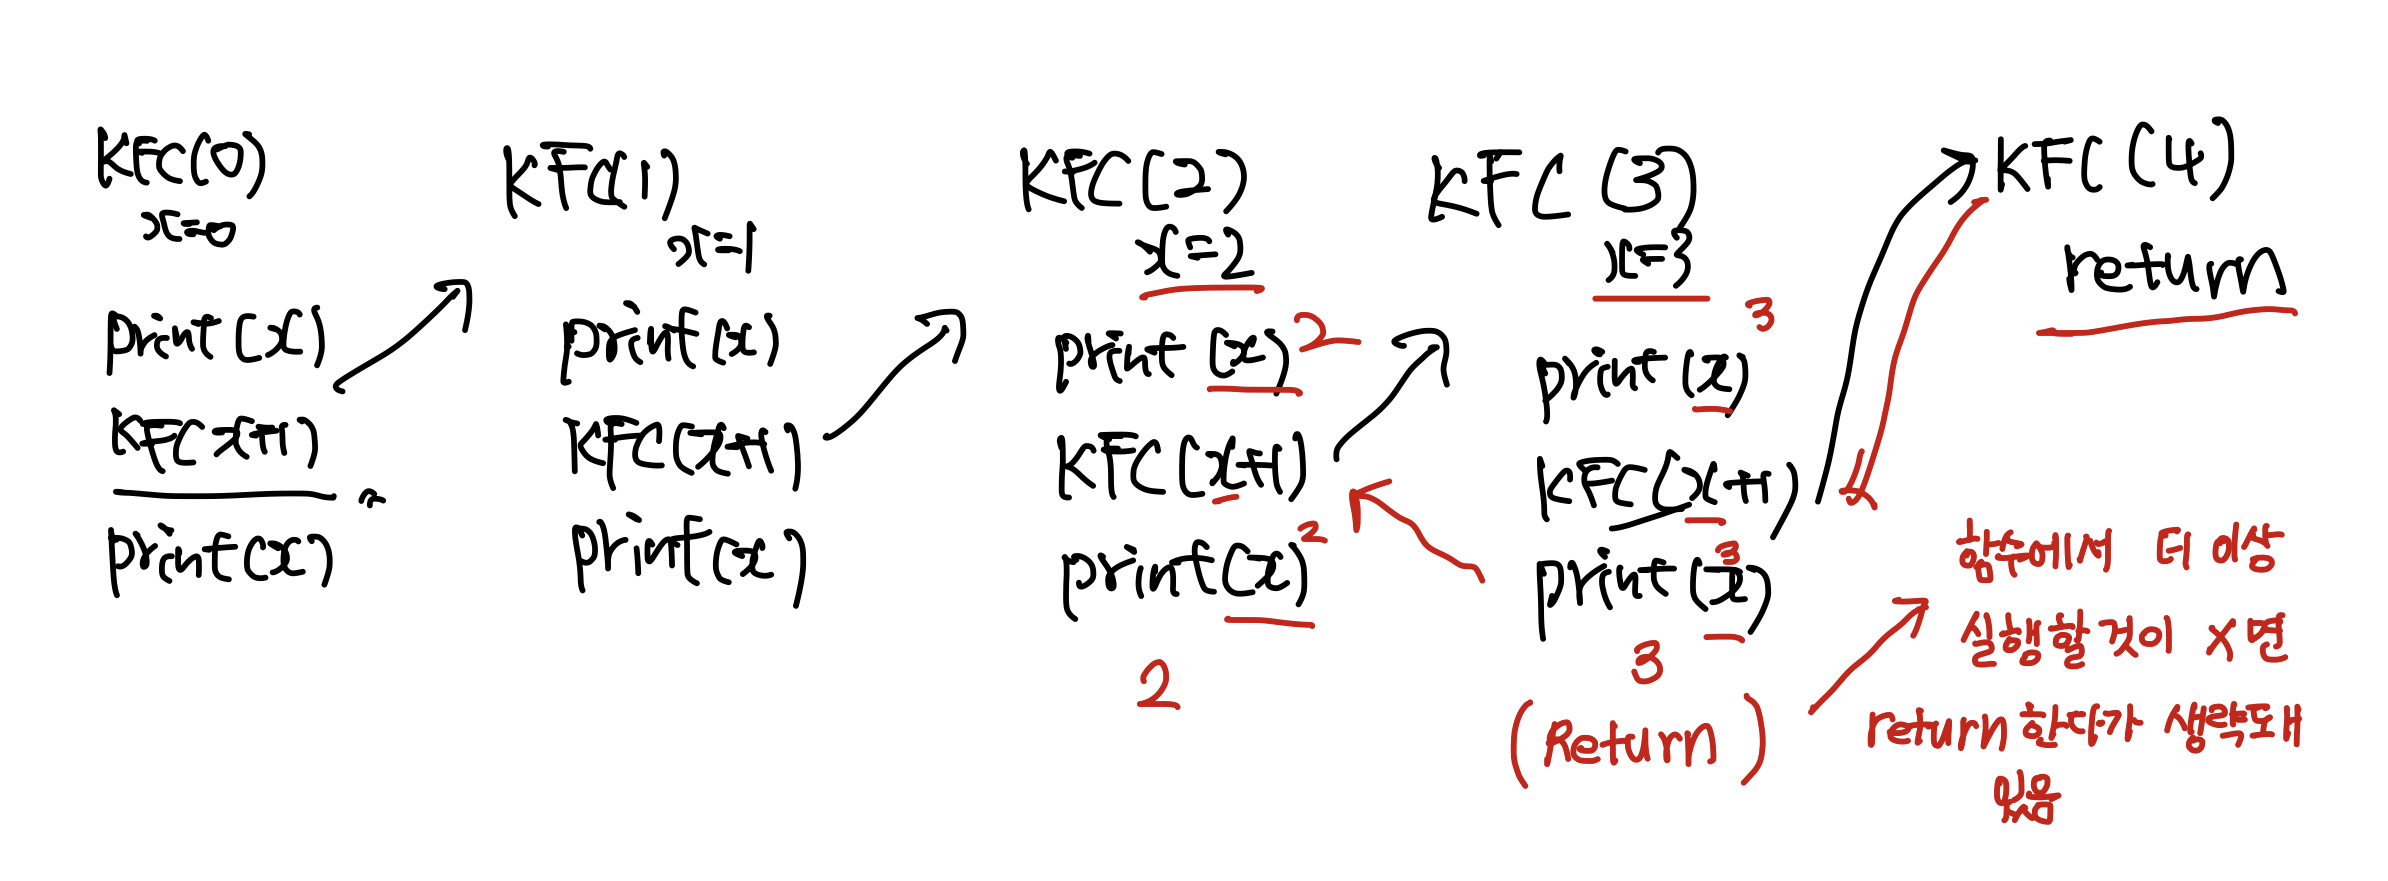 KFC(0)
x=0
print(x)
KFC x+1)
print(x)
KFC(1)
x=1
print(x)
KFC(x+1)
print(x)
KFC(2)
x=2
print(x) 2
KFC(x+1)
print(x) 2
2
KFC(3)
x=3
3
print(x)
KFC(x+1)
print(x) 3
3
(Return)
KFC(4)
return
함수에서 더 이상
실행할 것이 x면
return 한다가 생략돼
있음